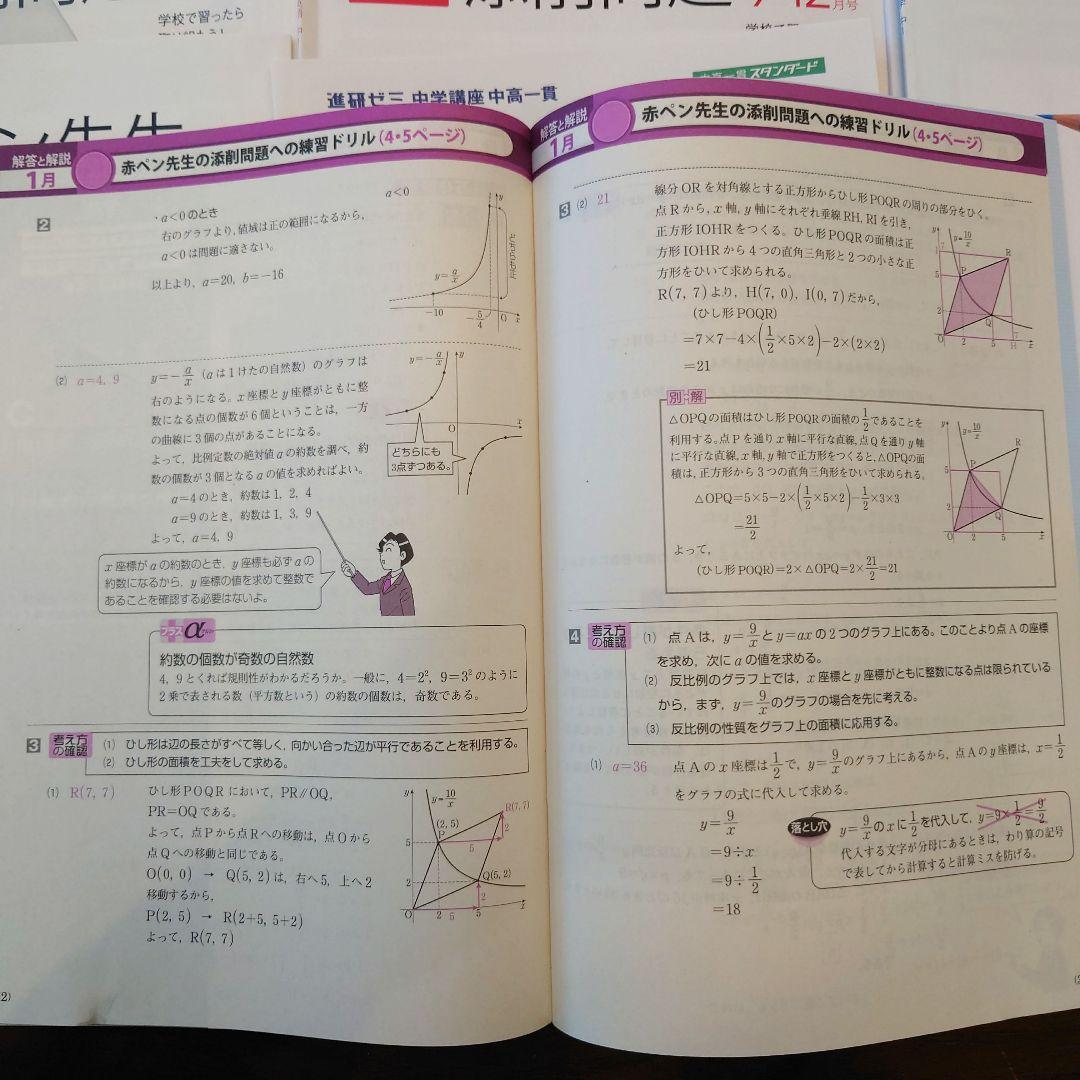 学校で習ったら
月号
進研ゼミ 中学講座 中高一貫
中高一貫スタンダード
解答と解説
1月
赤ペン先生の添削問題への練習ドリル(4・5ページ)
2
・a<0のとき
右のグラフより, 値域は正の範囲になるから,
a<0は問題に適さない。
以上より, a=20, b=−16
a<0
y
y=a/x
−10
−5/4
O
x
(2) a=4, 9
y=−a/x (aは1けたの自然数) のグラフは
右のようになる。x座標とy座標がともに整
数になる点の個数が6個ということは, 一方
の曲線に3個の点があることになる。
よって, 比例定数の絶対値aの約数を調べ, 約
数の個数が3個となるaの値を求めればよい。
a=4のとき, 約数は1, 2, 4
a=9のとき, 約数は1, 3, 9
よって, a=4, 9
y=−a/x
y
O
x
どちらにも
3点ずつある。
x座標がaの約数のとき, y座標も必ずaの
約数になるから, y座標の値を求めて整数で
あることを確認する必要はないよ。
プラスα
約数の個数が奇数の自然数
4, 9とくれば規則性がわかるだろうか。一般に, 4=2², 9=3²のように
2乗で表される数 (平方数という) の約数の個数は, 奇数である。
3
考え方の確認
(1) ひし形は辺の長さがすべて等しく, 向かい合った辺が平行であることを利用する。
(2) ひし形の面積を工夫をして求める。
(1) R(7, 7)
ひし形POQRにおいて, PR//OQ,
PR=OQである。
よって, 点Pから点Rへの移動は, 点Oから
点Qへの移動と同じである。
O(0, 0) → Q(5, 2)は, 右へ5, 上へ2
移動するから,
P(2, 5) → R(2+5, 5+2)
よって, R(7, 7)
y
y=10/x
R(7, 7)
(2, 5)
P
5
2
5
Q(5, 2)
2
2
O
2
5
5
x
解答と解説
1月
赤ペン先生の添削問題への練習ドリル(4・5ページ)
3
(2) 21
線分ORを対角線とする正方形からひし形POQRの周りの部分をひく。
点Rから, x軸, y軸にそれぞれ垂線RH, RIを引き,
正方形IOHRをつくる。ひし形POQRの面積は正
方形IOHRから4つの直角三角形と2つの小さな正
方形をひいて求められる。
R(7, 7)より, H(7, 0), I(0, 7)だから,
(ひし形POQR)
=7×7−4×(1/2×5×2)−2×(2×2)
=21
y
y=10/x
7
R
5
P
2
Q
O
2
5
7
H
x
別解
△OPQの面積はひし形POQRの面積の1/2であることを
利用する。点Pを通りx軸に平行な直線, 点Qを通りy軸
に平行な直線, x軸, y軸で正方形をつくると, △OPQの面
積は, 正方形から3つの直角三角形をひいて求められる。
△OPQ=5×5−2×(1/2×5×2)−1/2×3×3
=21/2
よって,
(ひし形POQR)=2×△OPQ=2×21/2=21
y
y=10/x
R
5
P
2
Q
O
2
5
x
4
考え方の確認
(1) 点Aは, y=9/xとy=axの2つのグラフ上にある。このことより点Aの座標
を求め, 次にaの値を求める。
(2) 反比例のグラフ上では, x座標とy座標がともに整数になる点は限られている
から, まず, y=9/xのグラフの場合を先に考える。
(3) 反比例の性質をグラフ上の面積に応用する。
(1) a=36
点Aのx座標は1/2で, y=9/xのグラフ上にあるから, 点Aのy座標は, x=1/2
をグラフの式に代入して求める。
y=9/x
=9÷x
=9÷1/2
=18
落とし穴
y=9/xのxに1/2を代入して, y=9×1/2=9/2
代入する文字が分母にあるときは, わり算の記号
で表してから計算すると計算ミスを防げる。